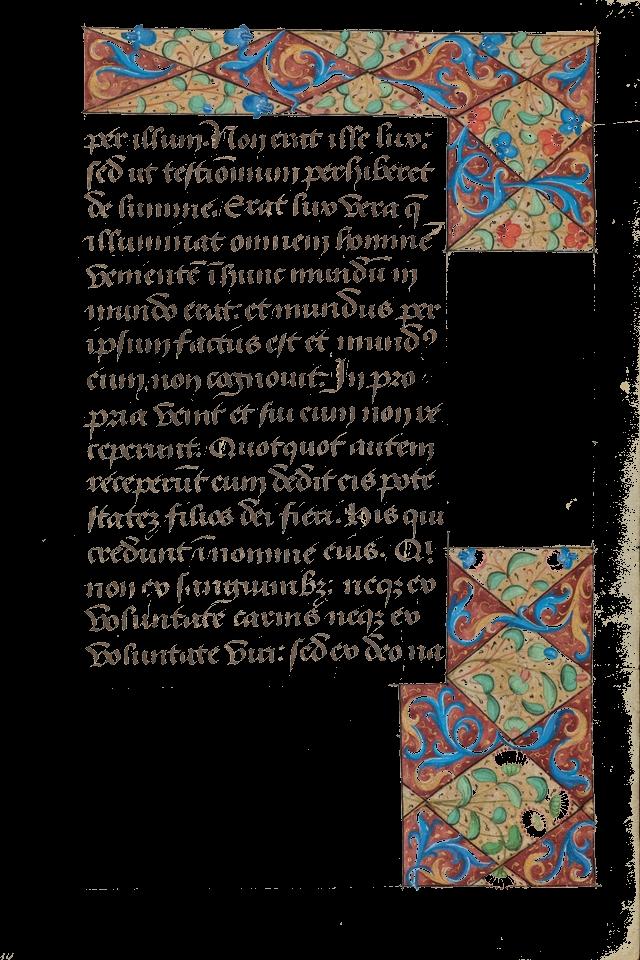 per illum. Non erat ille lux:
sed ut testīomum perhiberet
de lumine. Erat lux vera q̄
illuminat omnem hominē
venientē ī hunc mundū in
mundo erat: et mundus per
ipsum factus est et mundꝰ
eum non cognouit: In pro
pria venit et sui eum non re
ceperunt. Quotquot autem
receperūt eum dedit eis pote
statez filios dei fieri. His qui
credunt ī nomine eius. Qi
non ex sanguinibz: neqz ex
voluntate carnis neqz ex
voluntate viri: sed ex deo na